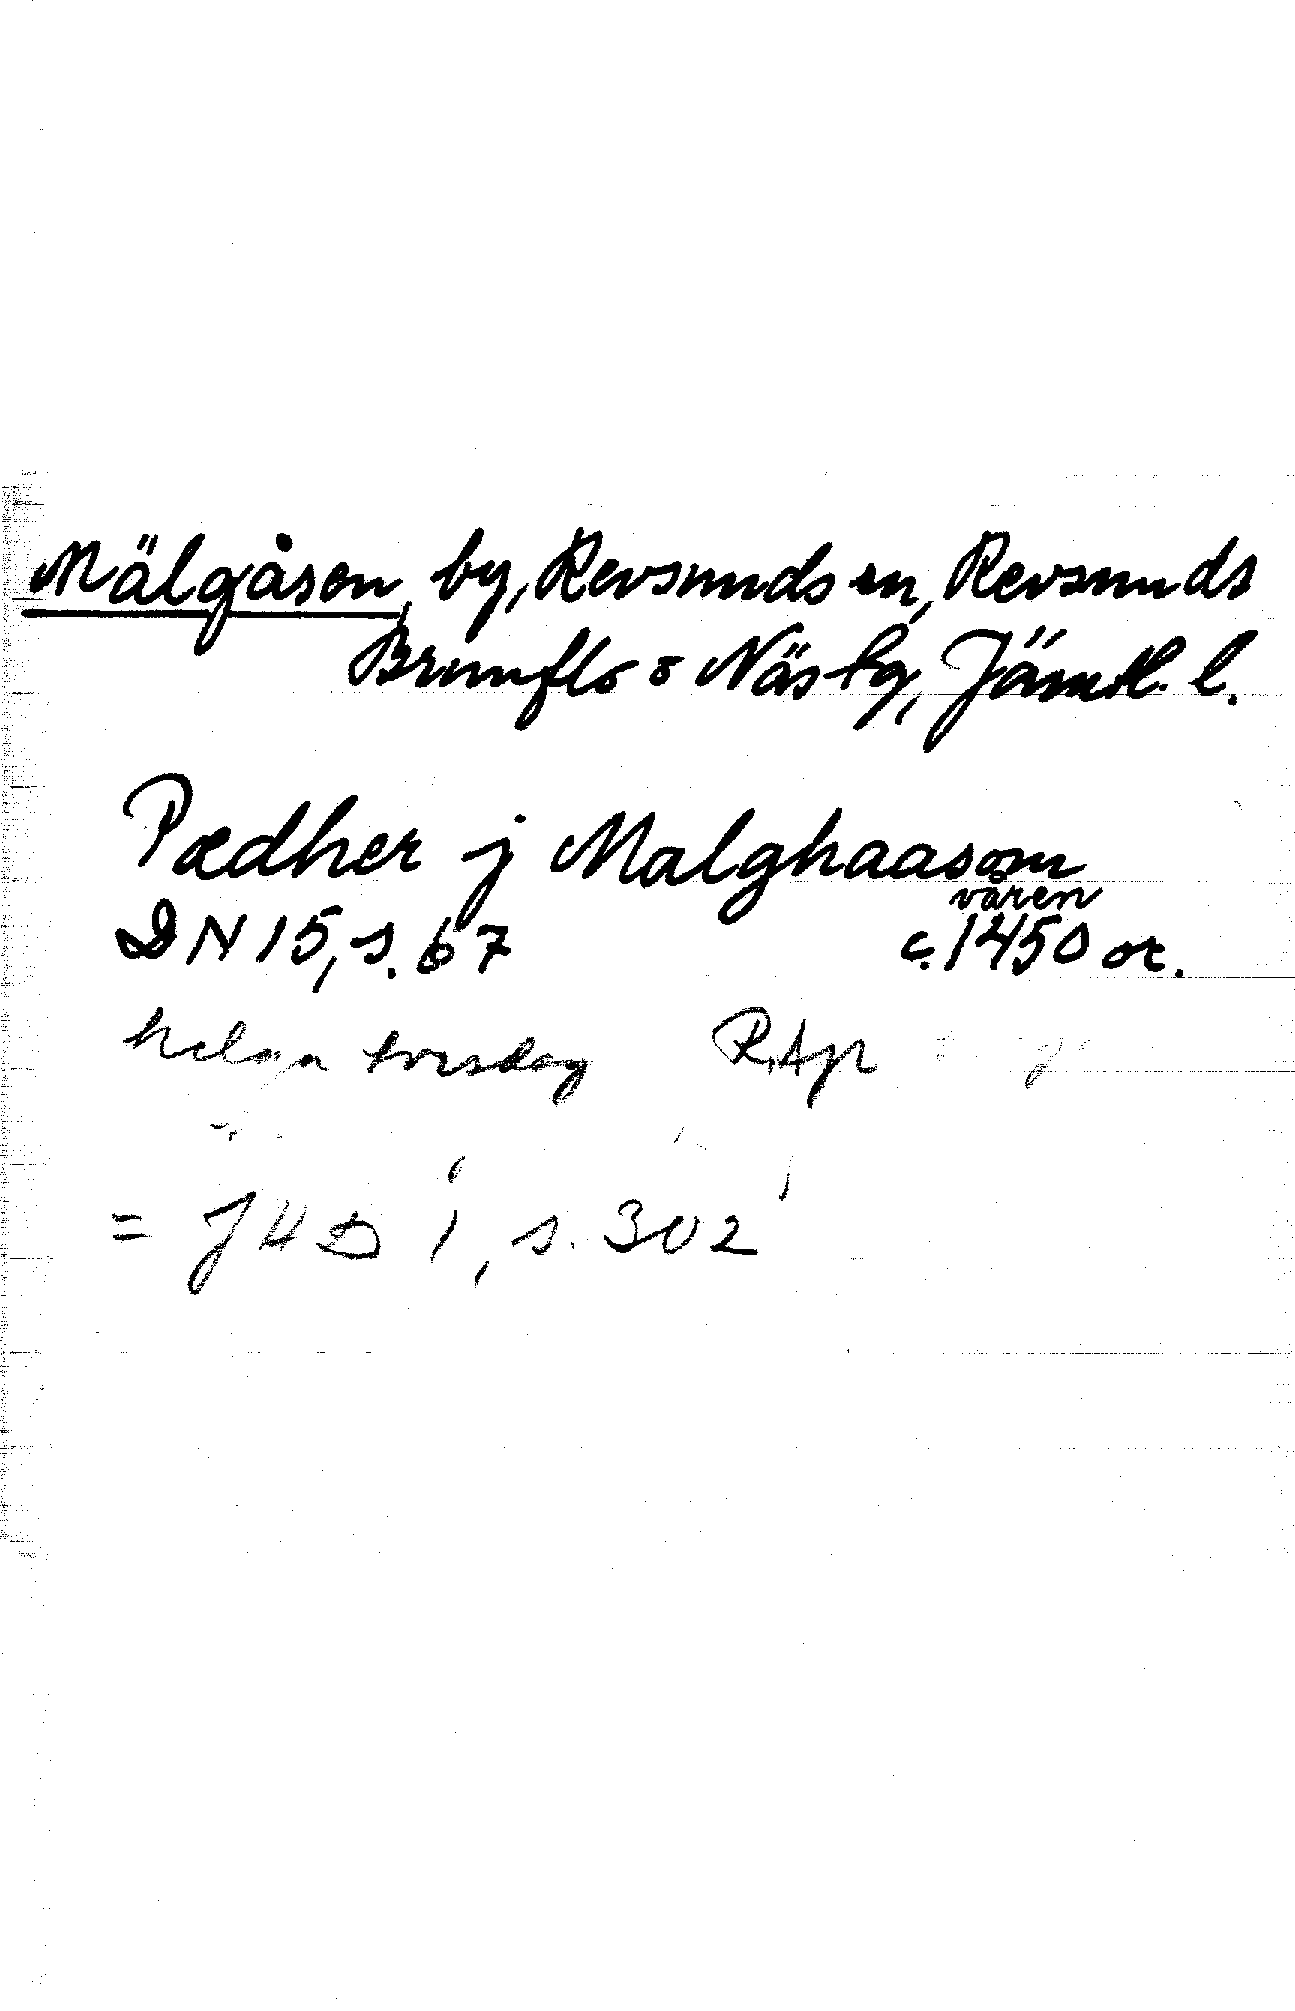 Mälgåsen, by, Revsunds sn, Revsunds
Brunflo o Näs tg, Jämtl. l.
Pædher j Malghaasom
våren
DN 15, s. 67 c. 1450 or.
helga torsdag RAp
= JHD 1, s. 302